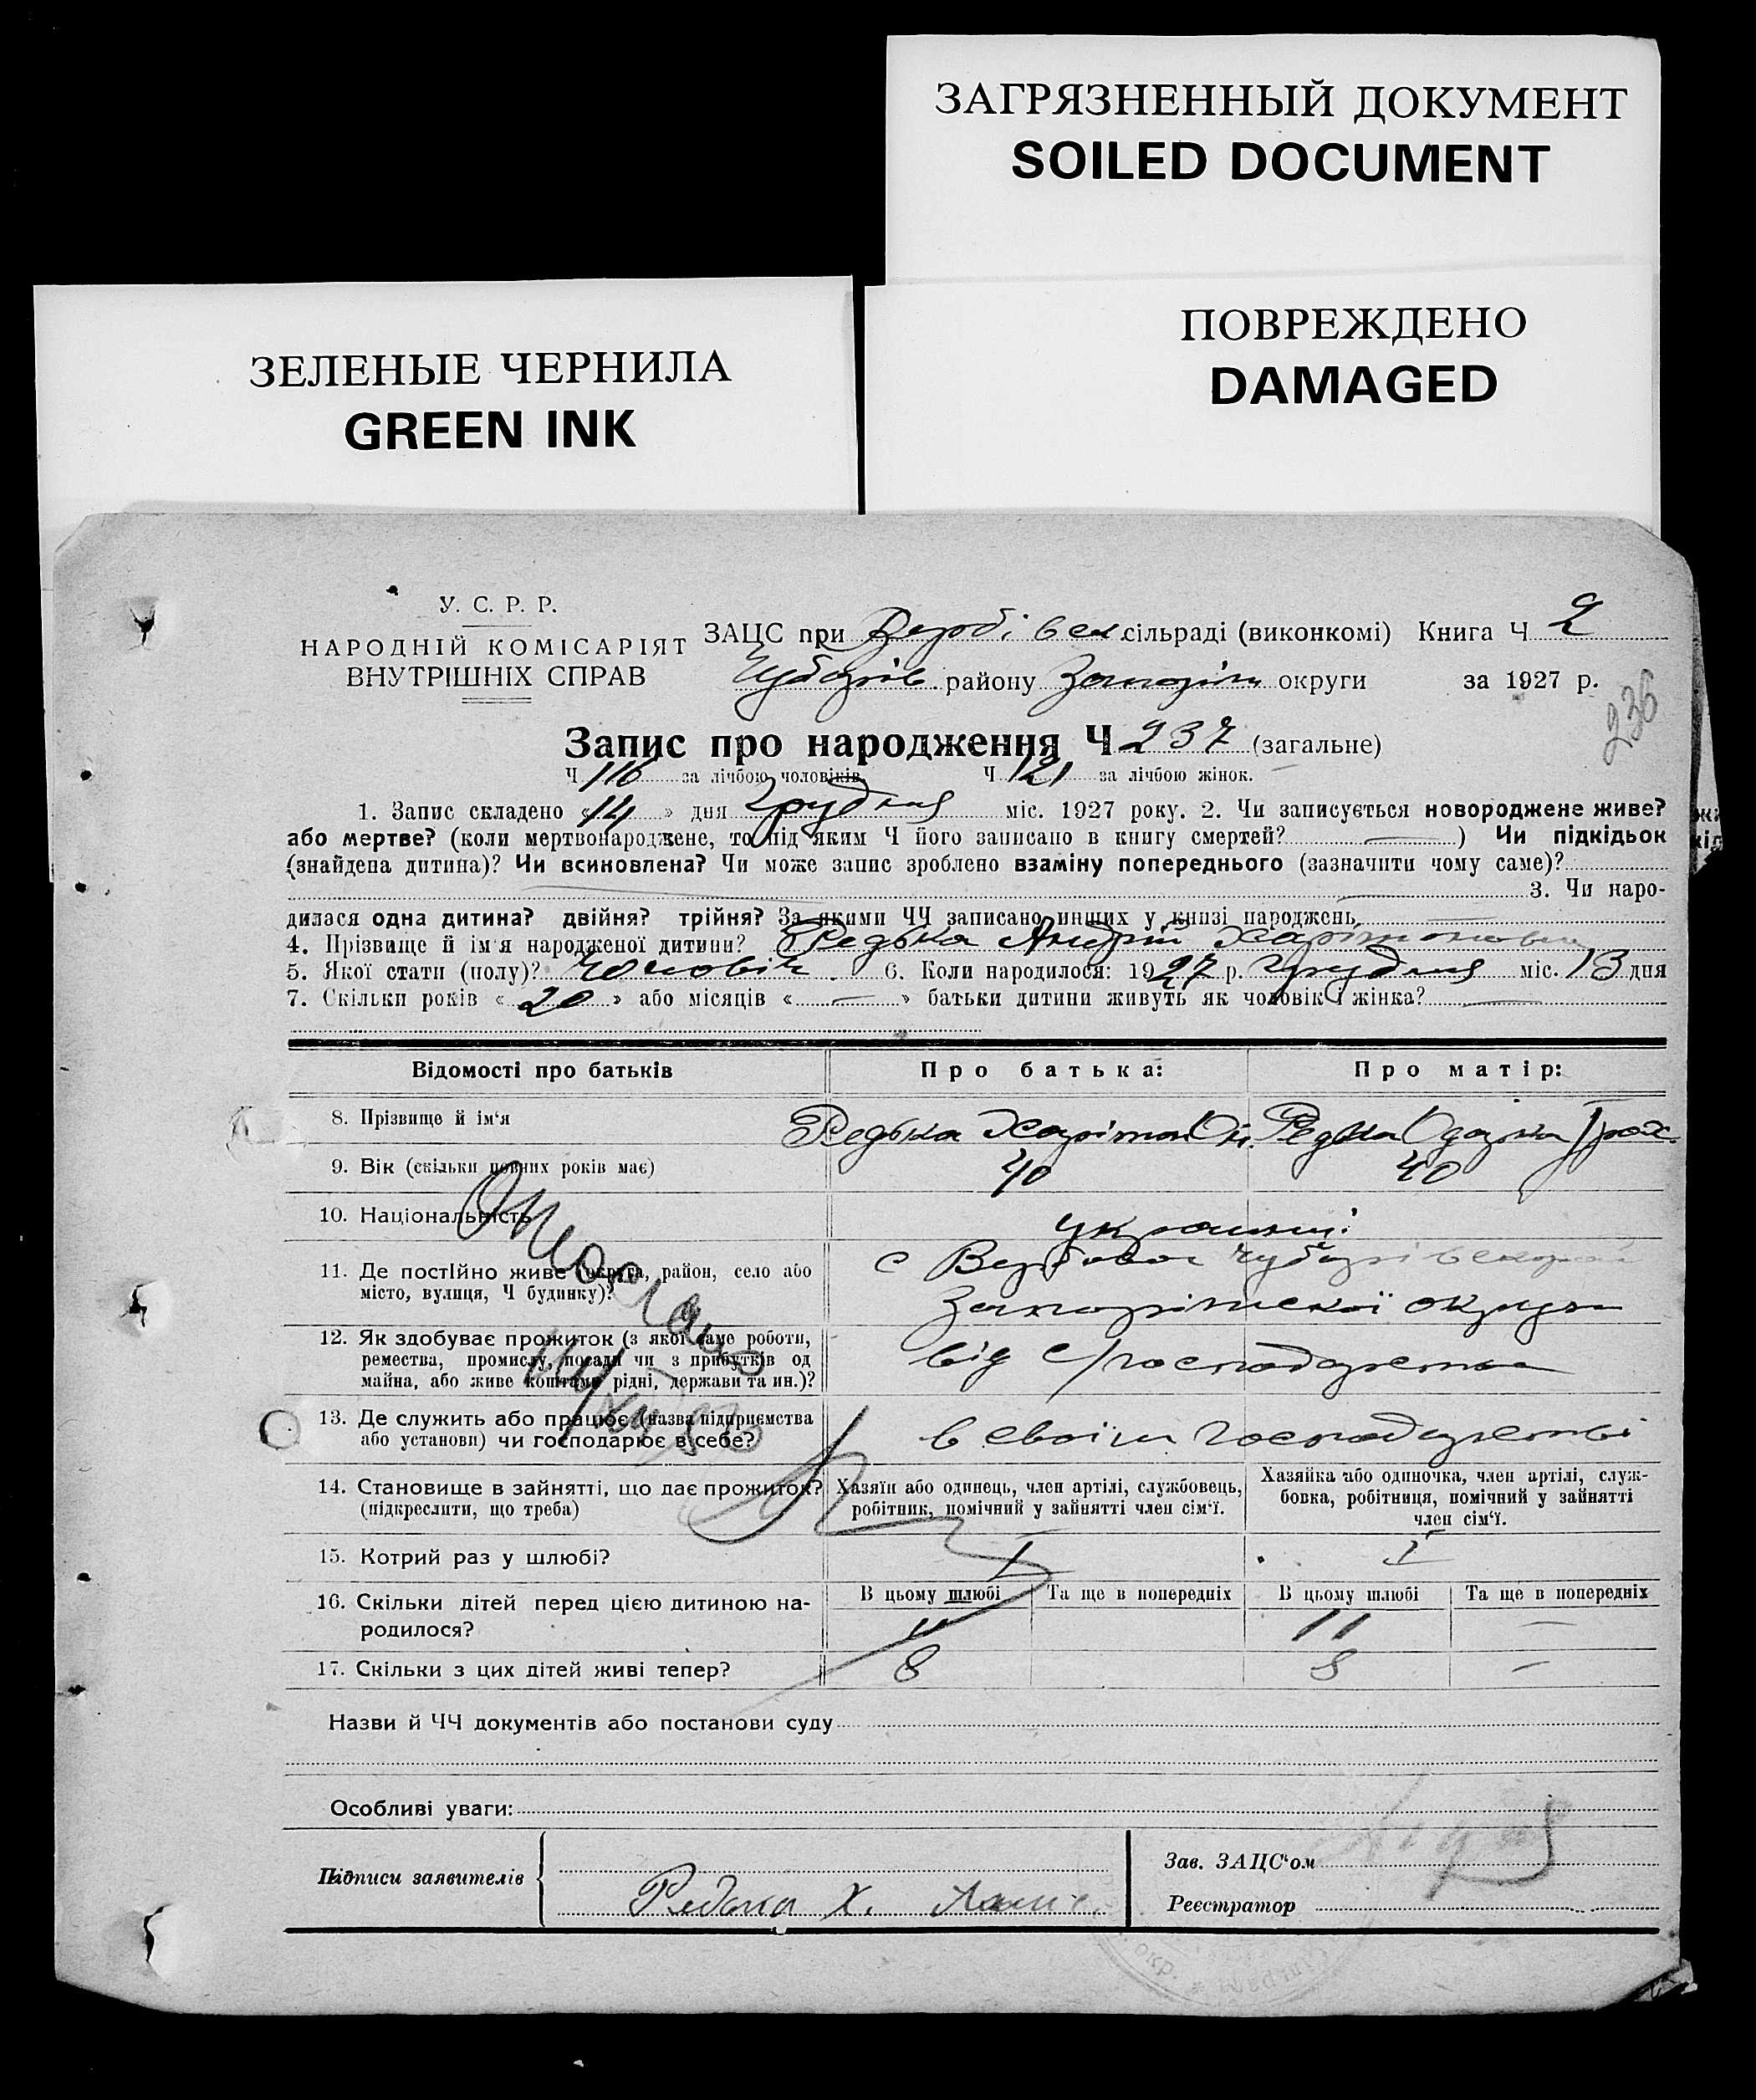 ЗАГРЯЗНЕННЫЙ ДОКУМЕНТ
SOILED DOCUMENT
ПОВРЕЖДЕНО
DAMAGED
ЗЕЛЕНЫЕ ЧЕРНИЛА
GREEN INK
У. С. Р. Р.
НАРОДНІЙ КОМІСАРІЯТ
ВНУТРІШНІХ СПРАВ
ЗАЦС при сільраді (виконкомі) Книга Ч 2
району округи за 1927 р.
236
Запис про народження Ч 237 (загальне)
Ч 116 за лічбою чоловіків. Ч 121 за лічбою жінок.
1. Запис складено «14» дня Грудня міс. 1927 року. 2. Чи записується новороджене живе?
або мертве? (коли мертвонароджене, то під яким Ч його записано в книгу смертей? —) Чи підкідьок
(знайдена дитина)? Чи всиновлена? Чи може запис зроблено взаміну попереднього (зазначити чому саме)?
3. Чи наро-
дилася одна дитина? двійня? трійня? За якими ЧЧ записано инших у книзі народжень —
4. Прізвище й ім'я народженої дитини? Редька Андрій Харітонович
5. Якої стати (полу)? Чоловік 6. Коли народилося: 1927 р. Грудня міс. 13 дня
7. Скільки років «20» або місяців «—» батьки дитини живуть як чоловік і жінка? —
Відомості про батьків Про батька: Про матір:
8. Прізвище й ім'я Редька Харітон Редька Одарка
9. Вік (скільки повних років має) 40 40
10. Національність українці
11. Де постійно живе (округа, район, село або
місто, вулиця, Ч будинку)? с Вербове
Запорізської округи
12. Як здобуває прожиток (з якої саме роботи,
ремества, промислу, посади чи з прибутків од
майна, або живе коштами рідні, держави та ин.)? від с/господарства
13. Де служить або працює (назва підприємства
або установи) чи господарює в себе? в своїм господарстві
14. Становище в зайнятті, що дає прожиток?
(підкреслити, що треба)
Хазяїн або одинець, член артілі, службовець,
робітник, помічний у зайнятті член сім'ї.
Хазяйка або одиночка, член артілі, служ-
бовка, робітниця, помічний у зайнятті
член сім'ї.
15. Котрий раз у шлюбі? I I
В цьому шлюбі Та ще в попередніх В цьому шлюбі Та ще в попередніх
16. Скільки дітей перед цією дитиною на-
родилося? 11 11 —
17. Скільки з цих дітей живі тепер? 8 8 —
Назви й ЧЧ документів або постанови суду
Особливі уваги:
Підписи заявителів
Редька Х.
Зав. ЗАЦС'ом
Реєстратор
окр.